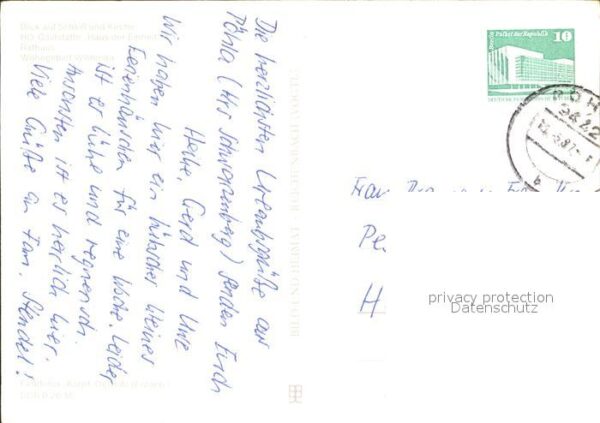 Blick auf Schloß und Kirche
HO-Gaststätte "Haus der Einheit"
Rathaus
Wohngebiet
Die herzlichsten Urlaubsgrüße aus
Pöhla (Krs. Schwarzenberg) senden Euch
Heike, Gerd und Uwe
Wir haben hier ein hübsches kleines
Ferienhäuschen für eine Woche. Leider
ist es kühl und regnerisch.
Ansonsten ist es herrlich hier.
Viele Grüße an Fam. Stendel!
BILD UND HEIMAT
Palast der Republik
10
PÖH
9442
Frau
Pe
H
privacy protection
Datenschutz